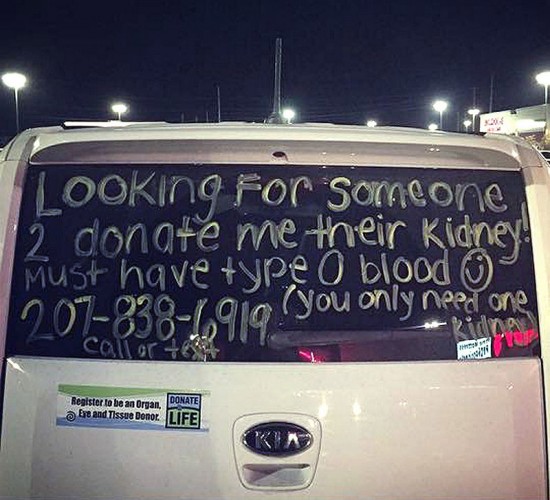 Looking For Someone
2 donate me their kidney!
Must have type O blood ☺
(you only need one
kidney)
207-838-6919
call or text
Register to be an Organ,
Eye and Tissue Donor.
DONATE
LIFE
KIA